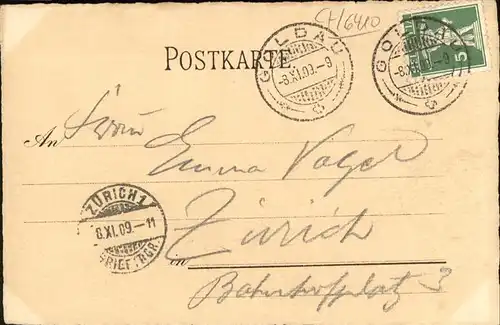 CH/6410
POSTKARTE
GOLDAU
-8.XI.09.-9
GOLDAU
-8.XI.09.-9
5
An
Emma Vogel
ZÜRICH 1
8.XI.09.-11
BRIEF.TRG.
Zürich
in
Bahnhofplatz 3